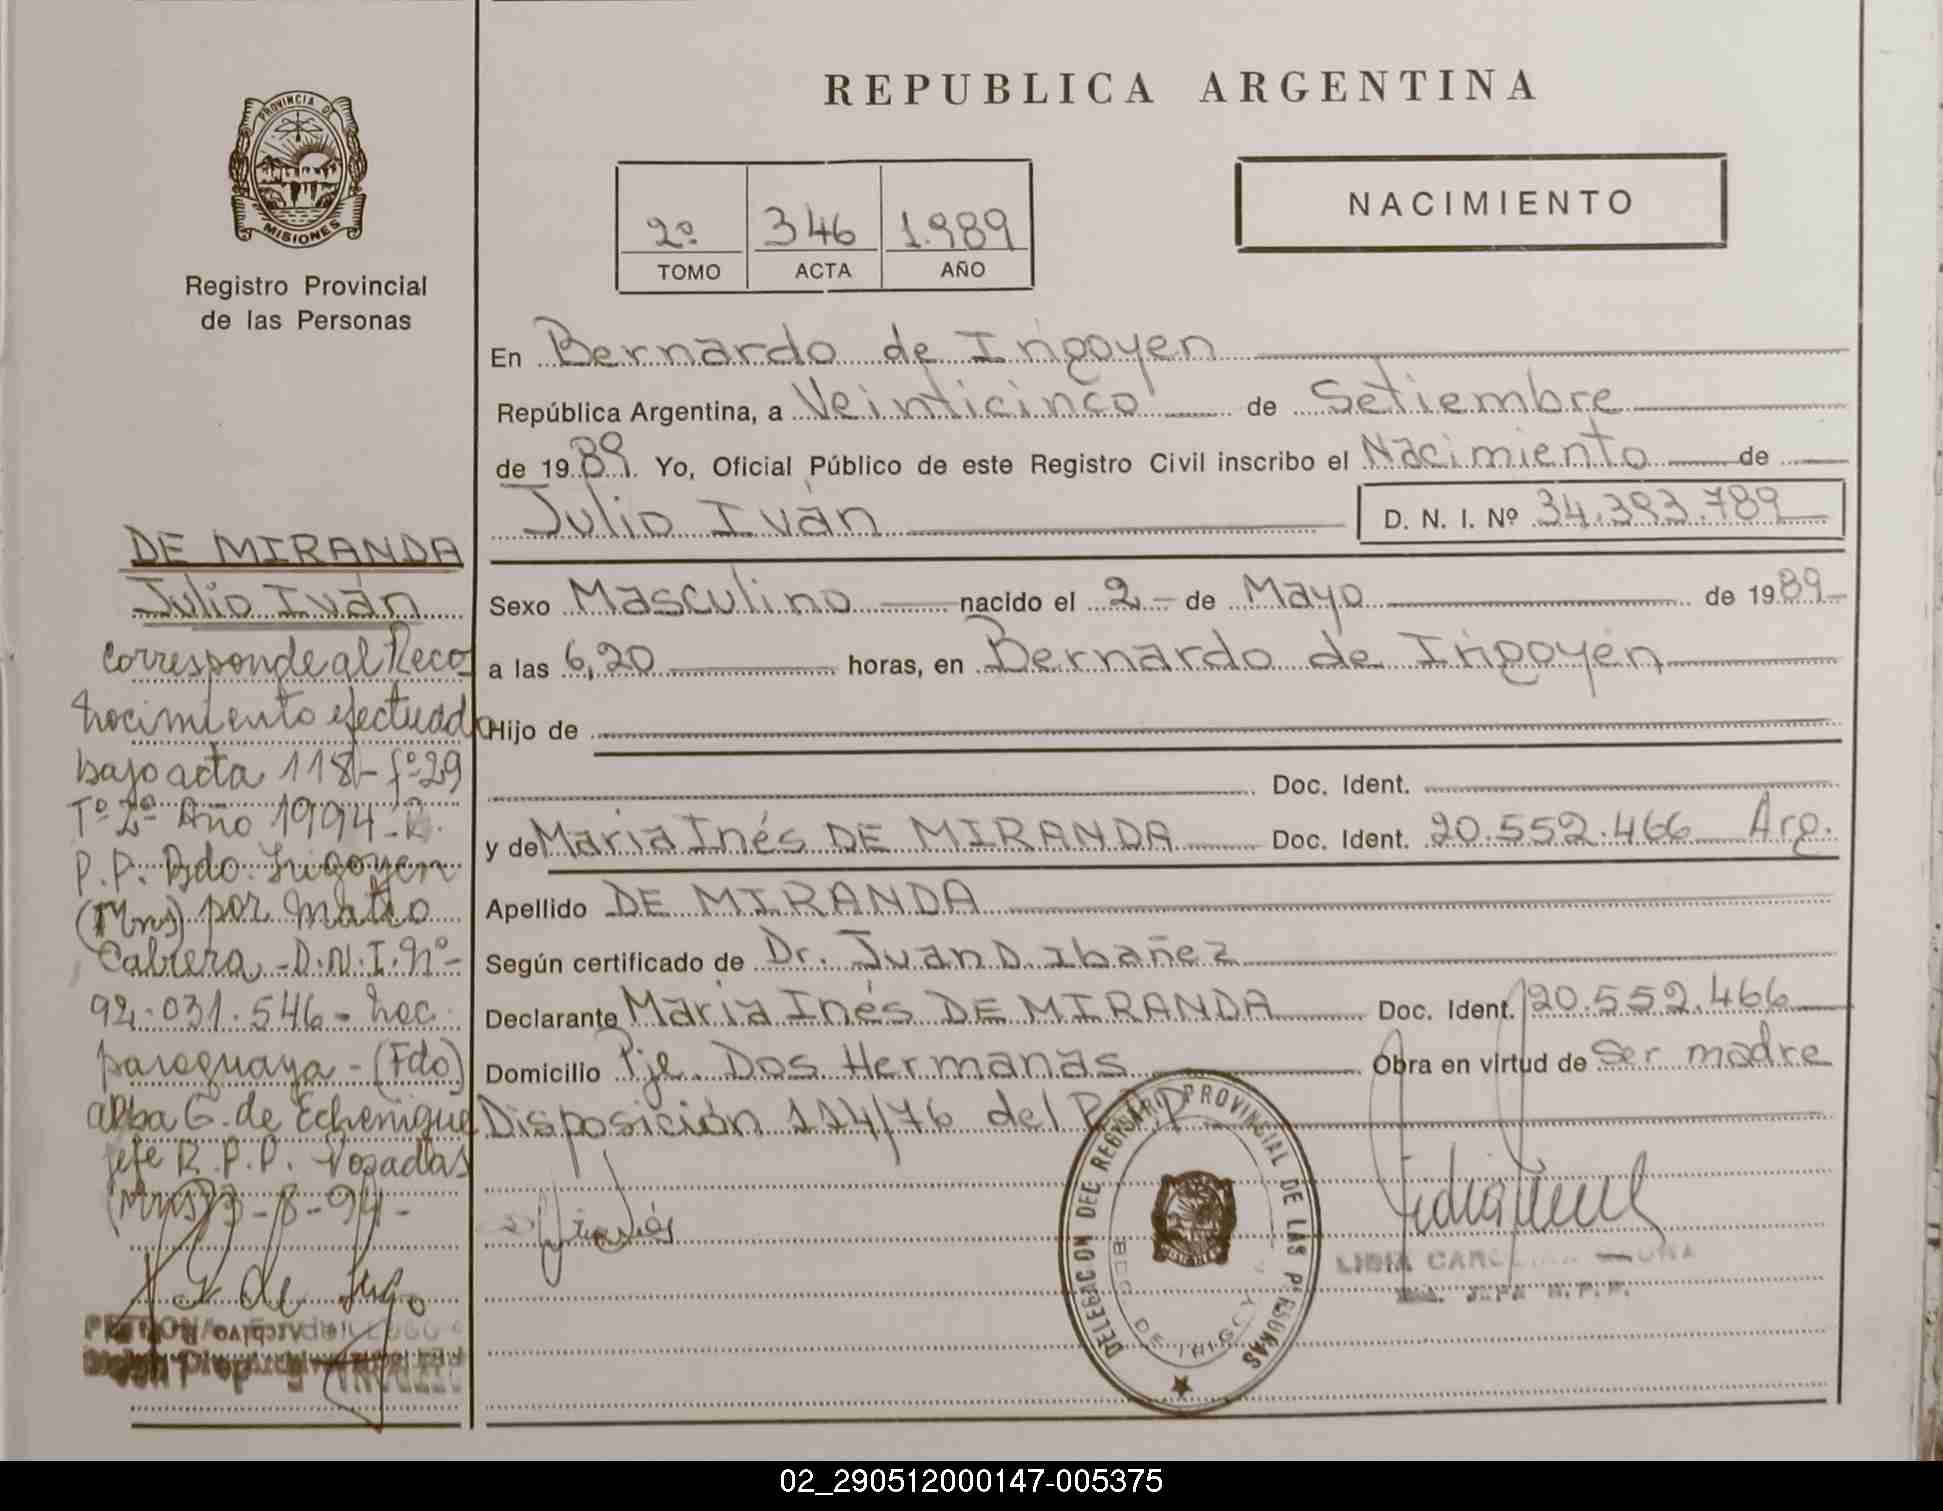 PROVINCIA DE
MISIONES
Registro Provincial
de las Personas
REPUBLICA ARGENTINA
2º 346 1.989
TOMO ACTA AÑO
NACIMIENTO
En Bernardo de Irigoyen
República Argentina, a Veinticinco de Setiembre
de 1989. Yo, Oficial Público de este Registro Civil inscribo el Nacimiento de
Julio Iván D. N. I. Nº 34.393.789
Sexo Masculino nacido el 2 de Mayo de 1989
a las 6,20 horas, en Bernardo de Irigoyen
Hijo de
Doc. Ident.
y de María Inés DE MIRANDA Doc. Ident. 20.552.466 Arg.
Apellido DE MIRANDA
Según certificado de Dr. Juan D. Ibañez
Declarante María Inés DE MIRANDA Doc. Ident. 20.552.466
Domicilio Pje. Dos Hermanas Obra en virtud de Ser madre
Disposición 114/76 del R.P.P.
DELEGACION DEL REGISTRO PROVINCIAL DE LAS PERSONAS
BDO DE IRIGOY
LIDIA
DE MIRANDA
Julio Iván
Corresponde al Reco
nocimiento efectuado
bajo acta 118- fº29
Tº 2º Año 1994-R.
P.P. Bdo. Irigoyen
(Mns) por Mateo
Cabrera - D.N.I. Nº-
92.031.546 - nac.
paraguaya - (Fdo)
Alba G. de Echenique
Jefe R.P.P. Posadas
(Mns)
02_290512000147-005375